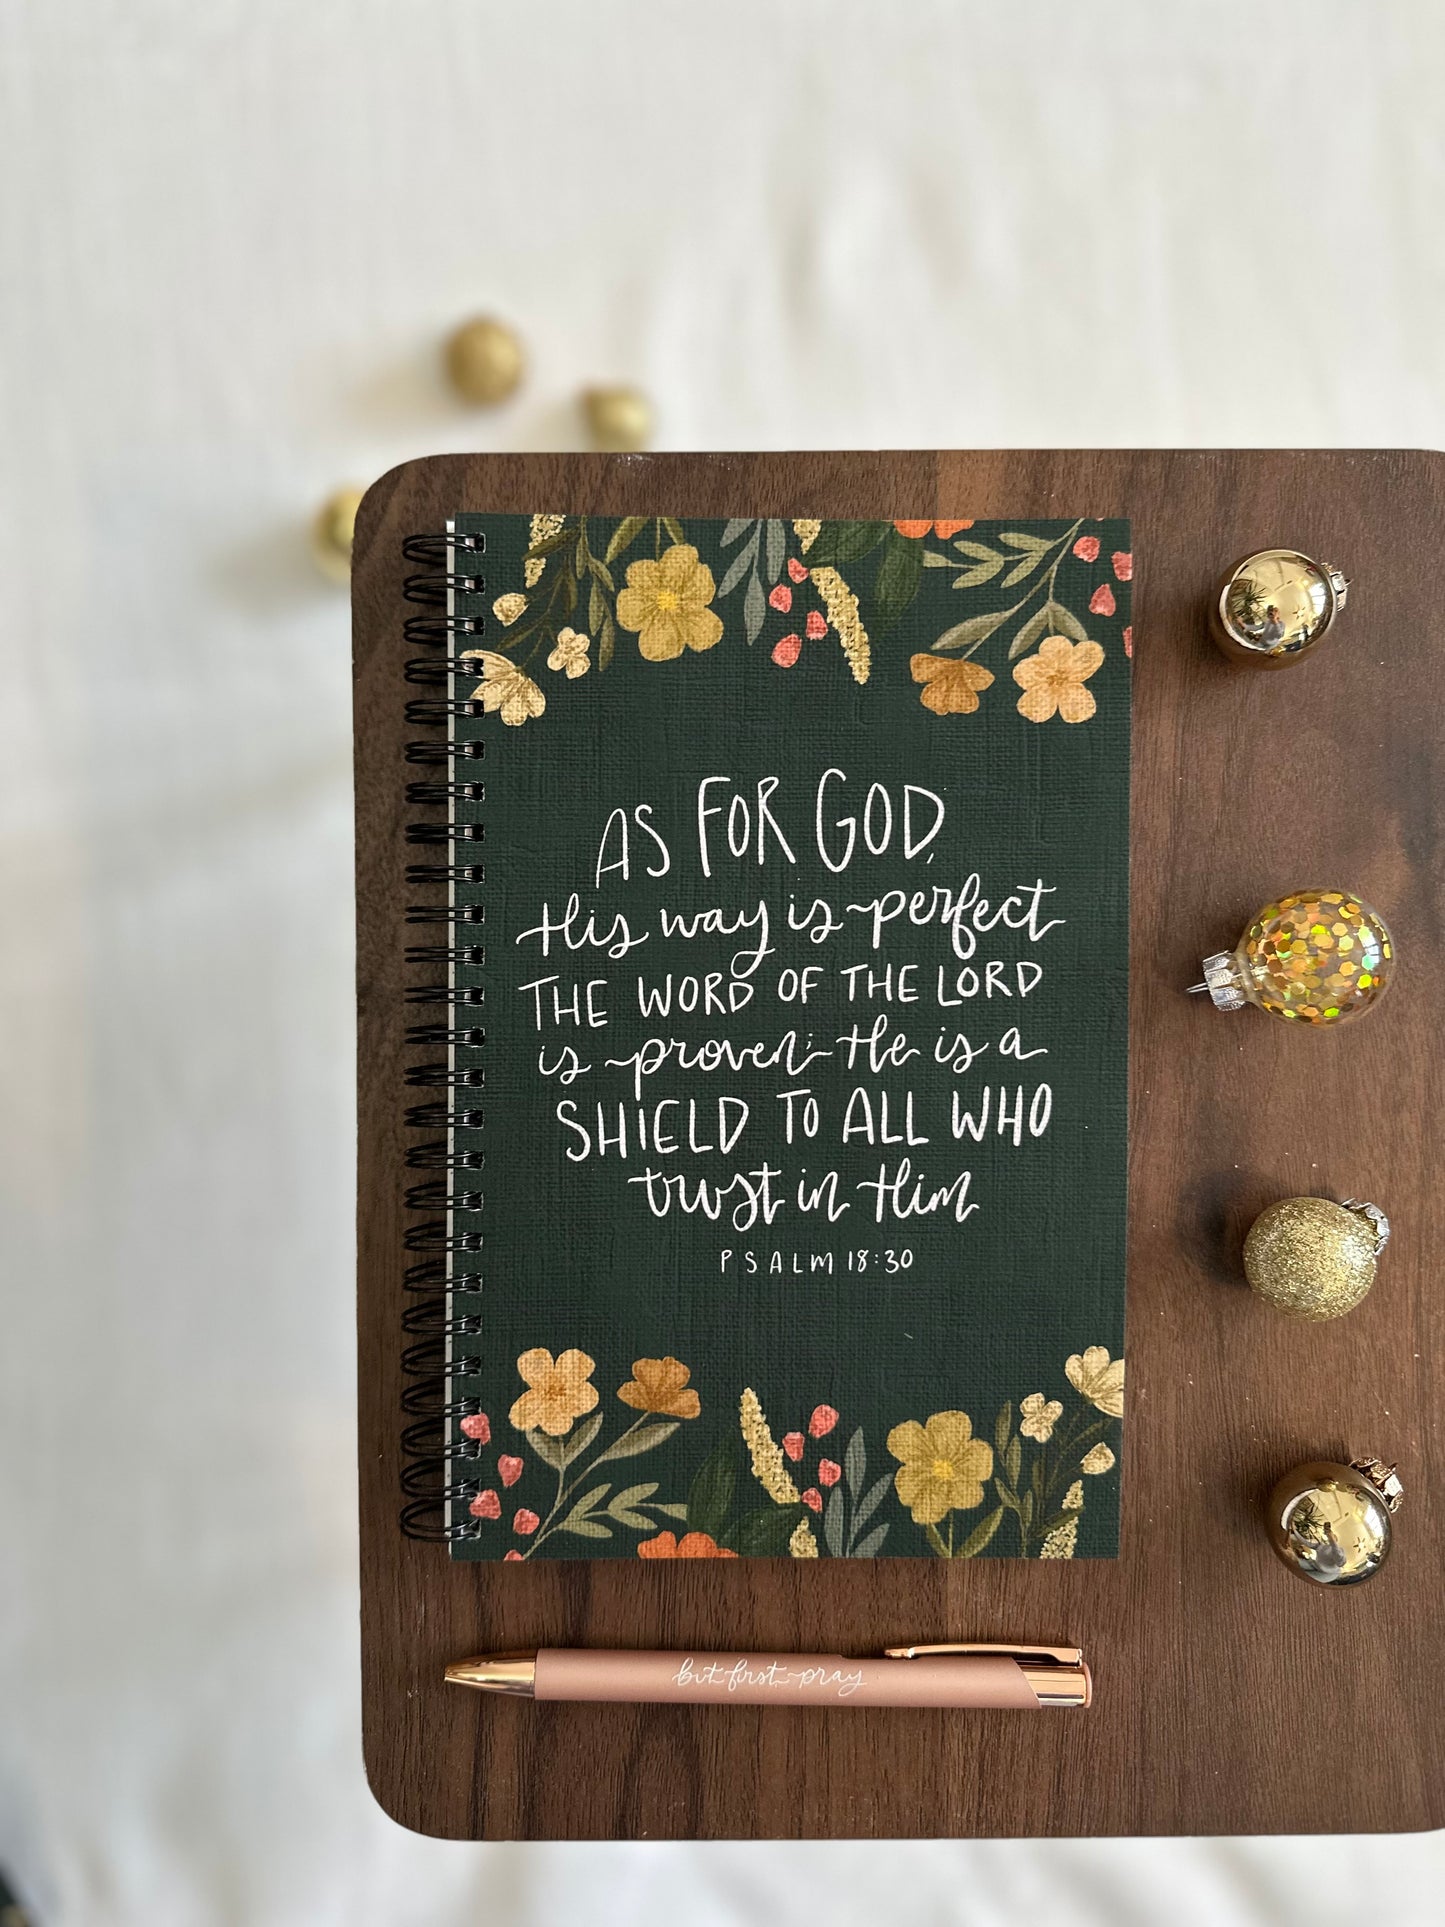 AS FOR GOD,
His way is perfect
THE WORD OF THE LORD
is proven; He is a
SHIELD TO ALL WHO
trust in Him
PSALM 18:30
but first pray